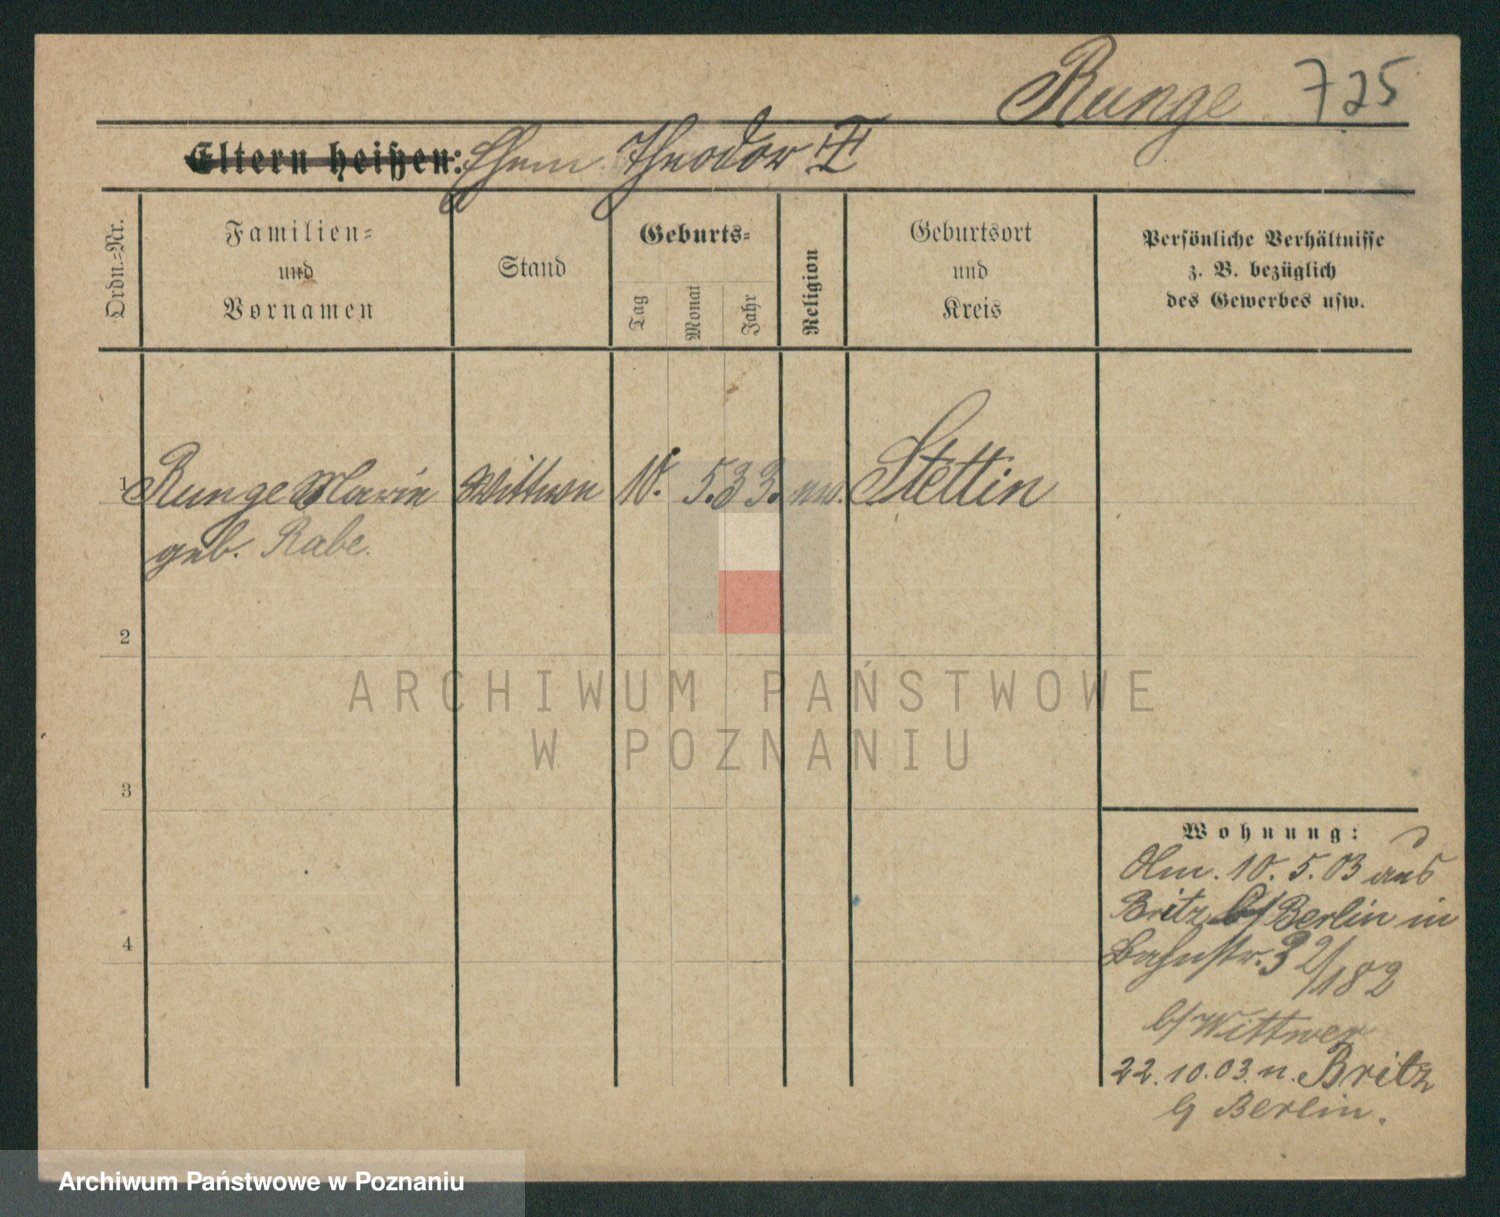 Runge 725
Eltern heißen: Ehem Theodor
Ordn.-Nr.
Familien-
und
Vornamen
Stand
Geburts-
Tag
Monat
Jahr
Religion
Geburtsort
und
Kreis
Persönliche Verhältnisse
z. B. bezüglich
des Gewerbes usw.
1 Runge Marie Wittwe 10. 5. 33. ev. Stettin
geb. Rabe.
2
3
4
Wohnung:
10. 5. 03 aus
Britz b/Berlin in
Bahnstr. 32/182
b/Wittwer
22.10.03. n. Britz
b/ Berlin.
ARCHIWUM PAŃSTWOWE
W POZNANIU
Archiwum Państwowe w Poznaniu